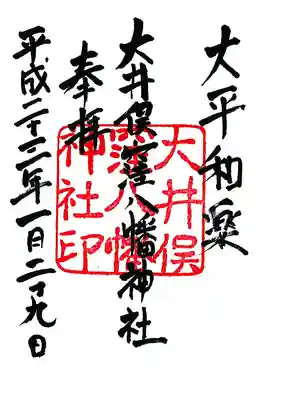 大平和楽
大井俣窪八幡神社
奉拝
平成二十二年一月二十九日
大井俣
窪八幡
神社印